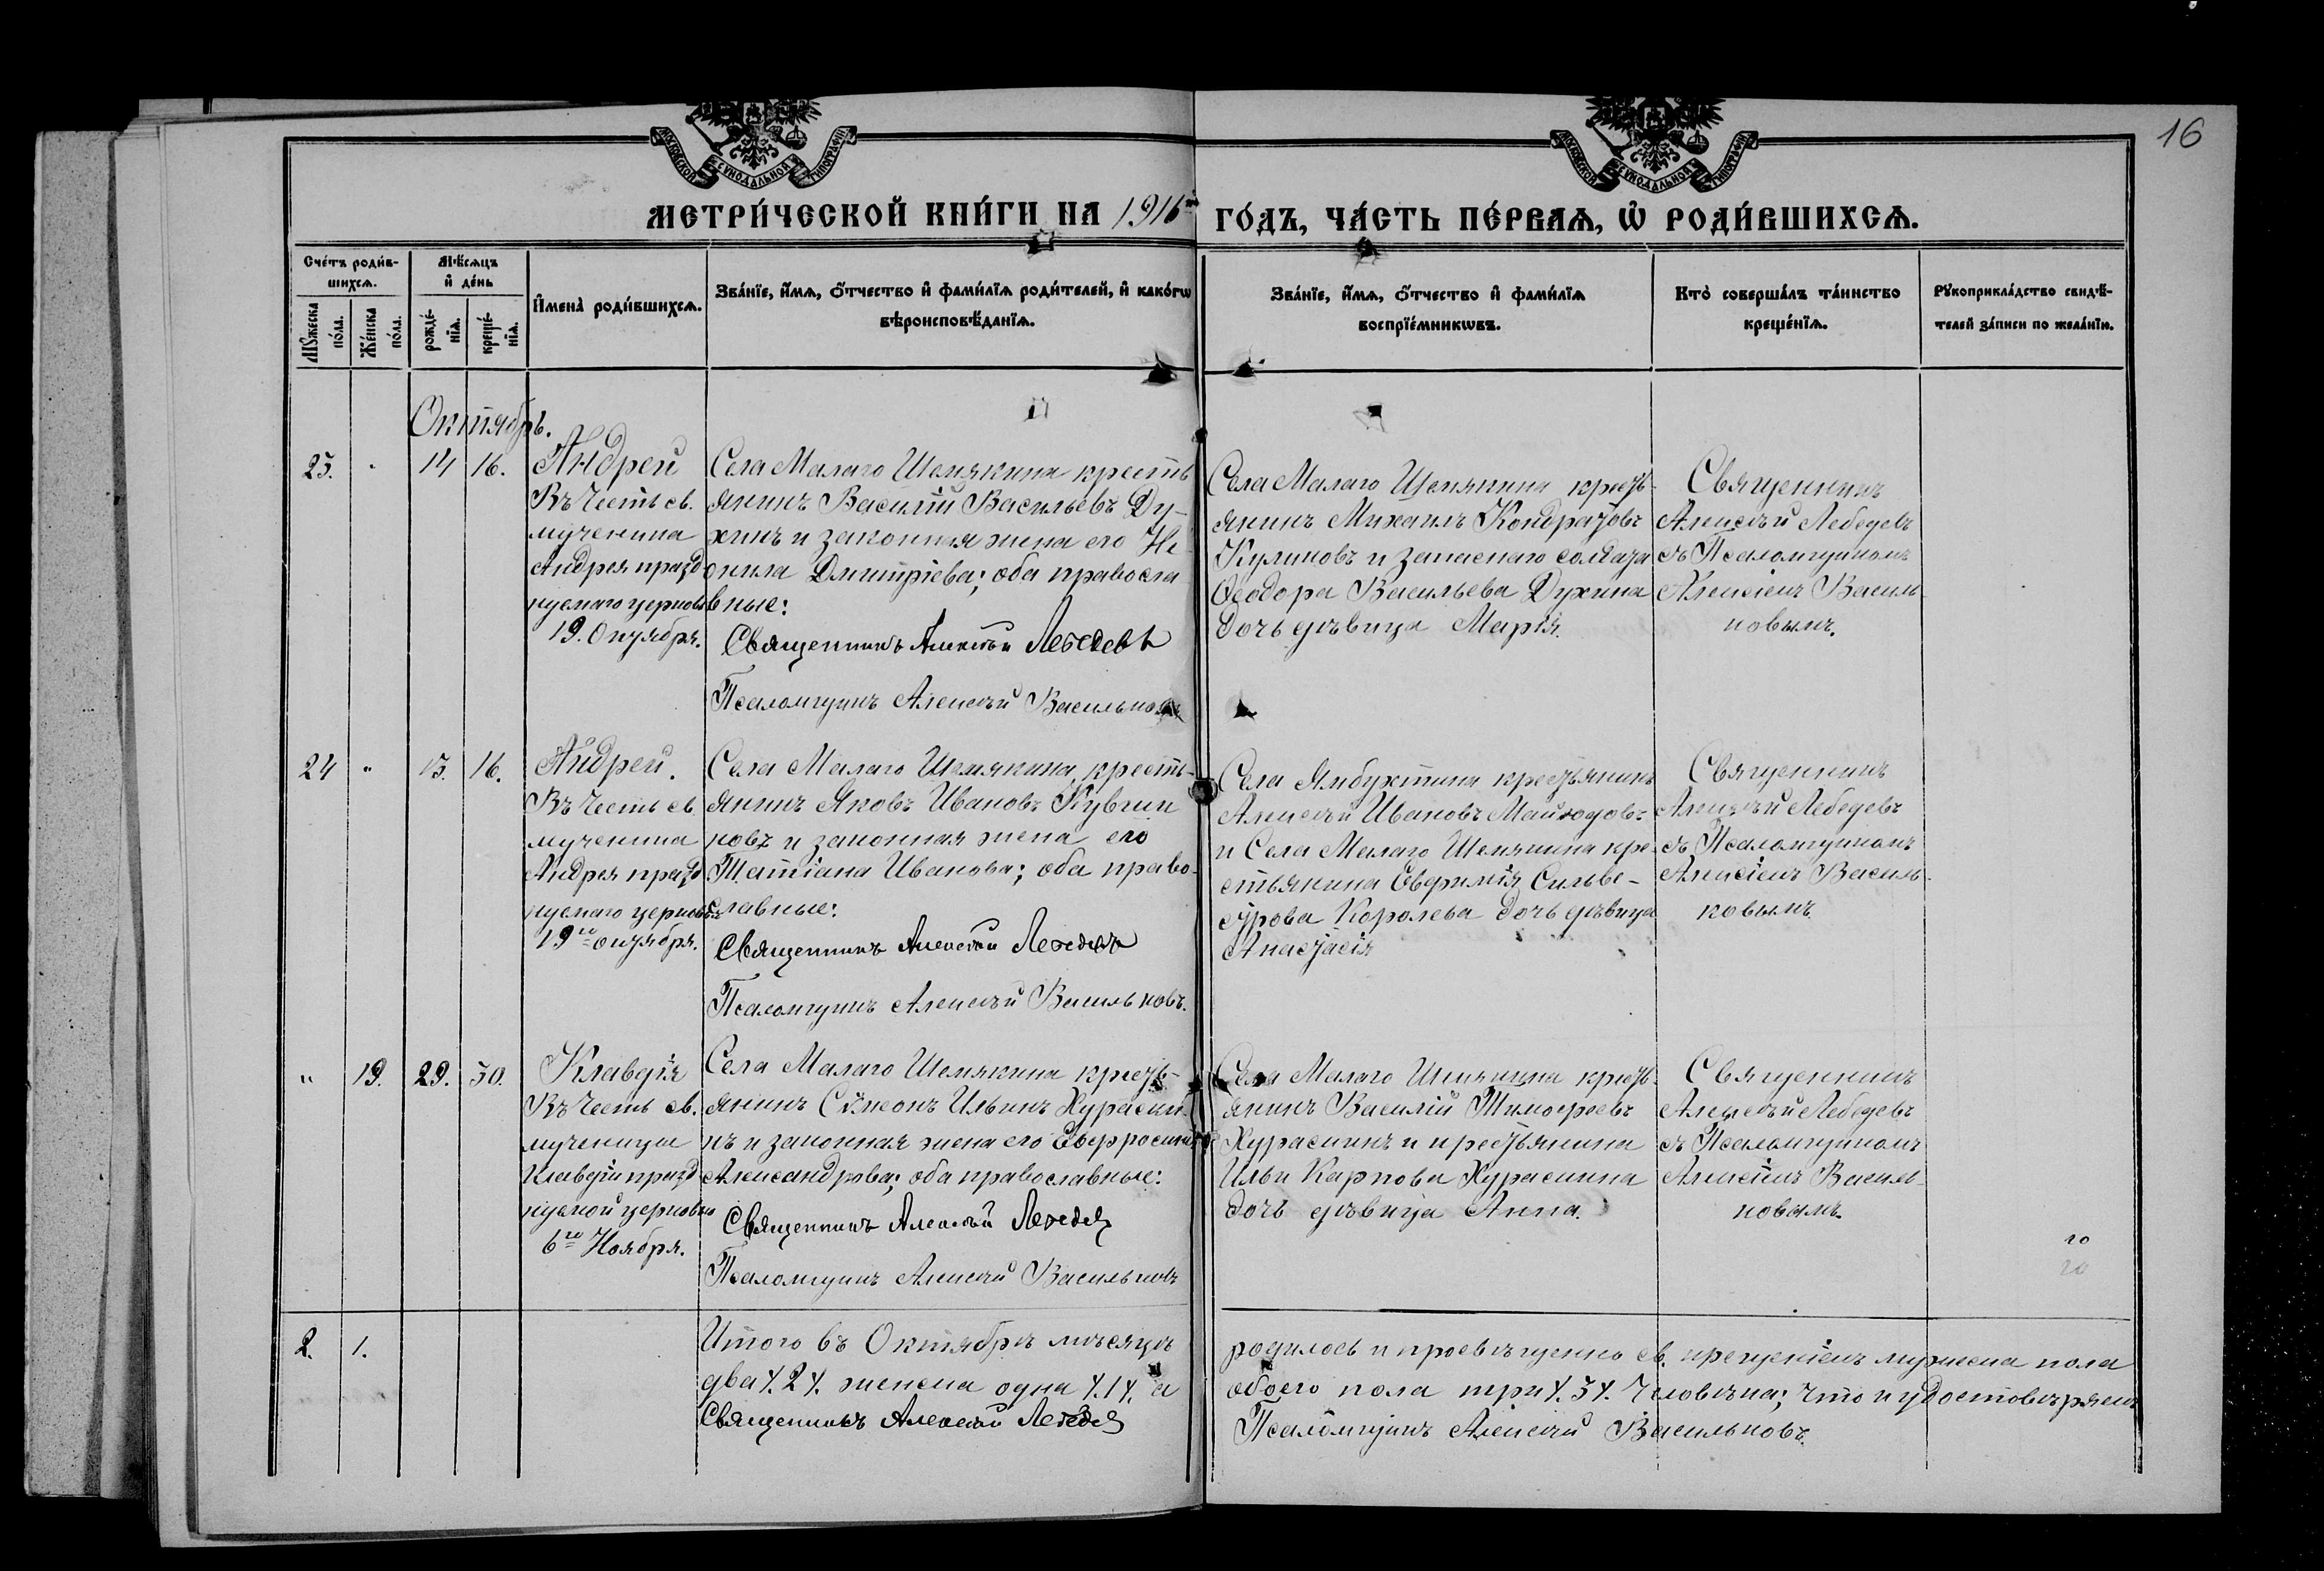 16
МОСКОВСКОЙ СѴНОДАЛЬНОЙ ТИПОГРАФІИ
МОСКОВСКОЙ СѴНОДАЛЬНОЙ ТИПОГРАФІИ
МЕТРИ́ЧЕСКОЙ КНИ́ГИ НА 1916й ГО́ДЪ, ЧА́СТЬ ПЕ́РВАѦ, Ѡ҆ РОДИ́ВШИХСѦ.
Сче́тъ роди́в-
шихсѧ.
Мѹ́жеска
по́ла.
Же́нска
по́ла.
Мѣ́сѧцъ
и҆ де́нь
рожде́-
нїѧ.
креще́-
нїѧ.
И҆мена̀ роди́вшихсѧ.
Зва́нїе, и҆́мѧ, ѻ҆́тчество и҆ фами́лїѧ роди́телей, и҆ како́гѡ
вѣроисповѣ́данїѧ.
Зва́нїе, и҆́мѧ, ѻ҆́тчество и҆ фами́лїѧ
воспрїе́мникѡвъ.
Кто̀ соверша́лъ та́инство
креще́нїѧ.
Рѹкоприкла́дство свидѣ́-
телей за́писи по жела́нїю.
Октябрь.
23. " 14 16.
Андрей
Въ честь св.
мученика
Андрея празд
нуемаго церковью
19. Октября.
Села Малаго Шемякина кресть
янинъ Василій Васильевъ Ду-
хинъ и законная жена его Не
онила Димитріева; оба правосла
вные:
Священникъ Алексѣй Лебедевъ
Псаломщикъ Алексѣй Васильковъ
Села Малаго Шемякина кресть-
янинъ Михаилъ Кондратовъ
Куликовъ и запаснаго солдата
Ѳеодора Васильева Духина
дочь дѣвица Марія.
Священникъ
Алексѣй Лебедевъ
съ Псаломщикомъ
Алексіемъ Василь
ковымъ.
24 " 15. 16.
Андрей.
Въ честь св
мученика
Андрея празд
нуемаго церковью
19го октября.
Села Малаго Шемякина, кресть-
янинъ Яковъ Ивановъ Кувши
ковъ и законная жена его
Татіана Иванова; оба право-
славные:
Священникъ Алексѣй Лебедевъ
Псаломщикъ Алексѣй Васильковъ.
Села Ямбухтина крестьянинъ
Алексѣй Ивановъ
и Села Малаго Шемякина кре-
стьянина Сильве-
строва Королева дочь дѣвица
Анастасія
Священникъ
Алексѣй Лебедевъ
съ Псаломщикомъ
Алексіемъ Василь-
ковымъ
" 19. 29. 30.
Клавдія
Въ честь св.
мученицы
Клавдіи празд
нуемой церковью
6го Ноября.
Села Малаго Шемякина кресть-
янинъ Сѵмеонъ Ильинъ Хураськи-
нъ и законная жена его Евфросинія
Александрова; оба православные:
Священникъ Алексѣй Лебедев
Псаломщикъ Алексѣй Васильковъ
Села Малаго Шемякина кресть-
янинъ Василій Тимофеевъ
Хураськинъ и крестьянина
Ильи Карпова Хураськина
дочь дѣвица Анна.
Священникъ
Алексѣй Лебедевъ
съ Псаломщикомъ
Алексіемъ Василь-
ковымъ.
го
го
2. 1.
Итого въ Октябрѣ мѣсяцѣ родилось и просвѣщено св. крещеніемъ мужеска пола
два /.2/. женска одна /.1/. а обоего пола три /.3/. Человѣка; Что и удостовѣряемъ
Священникъ Алексѣй Лебедев Псаломщикъ Алексѣй Васильковъ.